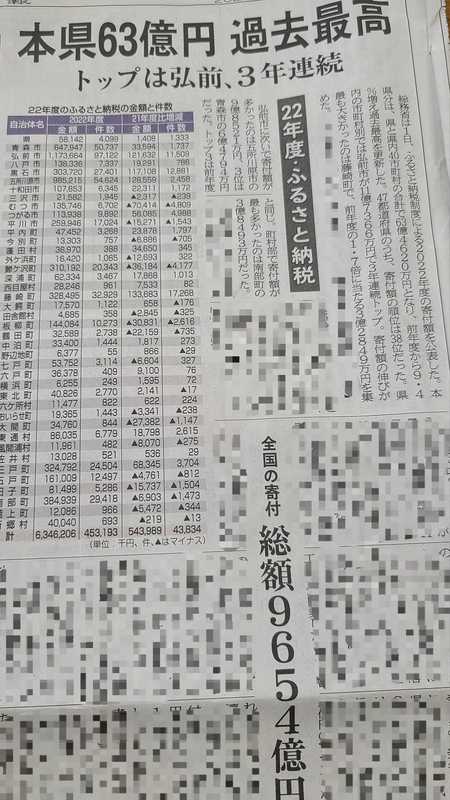 本県63億円 過去最高
トップは弘前、3年連続
22年度のふるさと納税の金額と件数
自治体名 2022年度 21年度比増減
金額 件数 金額 件数
県 58,142 4,099 1,409 1,333
青森市 647,947 50,737 33,594 1,737
弘前市 1,173,664 87,122 121,632 11,509
八戸市 138,336 7,337 19,291 786
黒石市 303,720 27,401 117,108 12,881
五所川原市 985,215 54,624 128,559 2,458
十和田市 107,853 6,345 22,311 1,172
三沢市 21,582 1,945 ▲2,317 ▲239
むつ市 135,764 6,702 ▲70,414 ▲1,543
つがる市 113,938 9,892 56,085 4,988
平川市 258,946 17,024 ▲15,271 ▲1,543
平内町 47,452 3,268 23,878 1,797
今別町 13,303 757 ▲8,886 ▲705
蓬田村 38,970 388 34,650 11
外ヶ浜町 16,420 1,065 ▲12,693 322
鰺ヶ沢町 310,192 20,343 ▲36,184 ▲4,177
深浦町 62,334 3,467 17,868 1,013
西目屋村 28,248 961 7,533 82
藤崎町 328,495 32,929 133,883 17,268
大鰐町 17,570 1,122 658 ▲176
田舎館村 4,685 358 ▲2,845 ▲325
板柳町 144,084 10,273 ▲30,831 ▲2,616
鶴田町 32,589 2,738 ▲22,159 ▲735
中泊町 33,400 1,444 1,817 273
野辺地町 6,377 55 ▲866 ▲29
七戸町 53,752 3,114 ▲6,604 327
六戸町 36,378 409 9,100 76
横浜町 6,255 249 1,595 72
東北町 40,826 2,770 2,141 ▲17
六ヶ所村 11,477 822 622 224
おいらせ町 19,365 1,443 ▲3,341 ▲238
大間町 34,760 844 ▲27,382 ▲1,147
東通村 86,035 6,779 18,798 2,615
風間浦村 11,961 482 ▲8,070 ▲275
佐井村 13,028 521 536 29
三戸町 324,792 24,504 68,345 3,704
五戸町 161,009 12,497 ▲4,761 ▲812
田子町 81,499 5,286 ▲15,737 ▲1,504
南部町 384,939 29,418 ▲5,903 ▲1,473
階上町 12,086 966 ▲5,472 ▲344
新郷村 40,040 693 ▲219 ▲13
計 6,346,206 453,193 543,989 43,834
(単位:千円、件、▲はマイナス)
22年度・ふるさと納税
総務省は1日、ふるさと納税制度による2022年度の寄付額を公表した。本
県分は、県と県内40市町村の合計で63億4620万円となり、前年度から9・4
%増え過去最高を更新した。47都道府県のうち、寄付額の順位は38位だった。県
内の市町村別では弘前市が11億7366万円で3年連続トップ。寄付額の伸びが
最も大きかったのは藤崎町で、前年度の1・7倍に当たる3億2849万円を集
めた。
弘前市に次いで寄付額が
多かったのは五所川原市の
9億8521万円、3位は
青森市の6億4794万円
だった。トップ3は前年度
と同じ。町村部で寄付額が
最も多かったのは南部町の
3億8493万円だった。
全国の寄付
総額9654億円